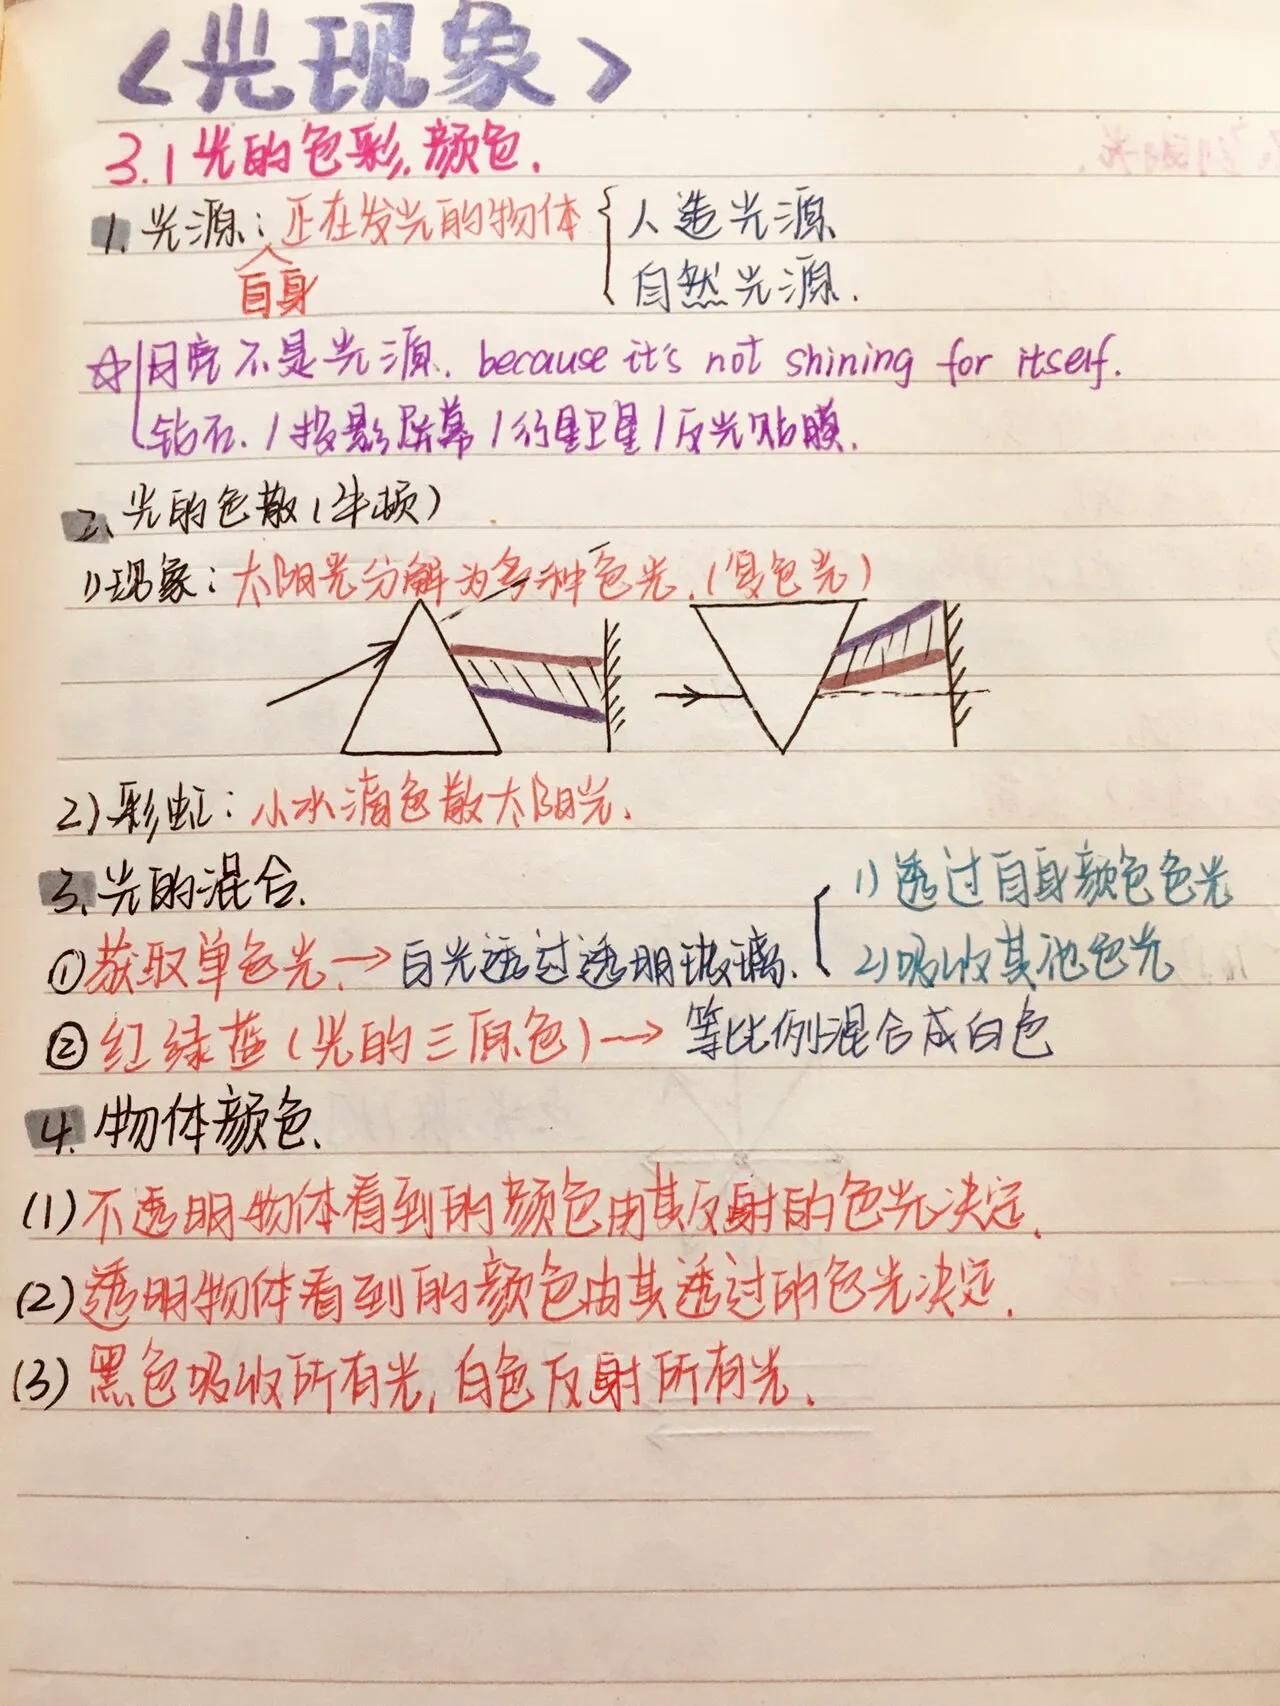 <光现象>
3.1光的色彩.颜色.
1. 光源: 正在发光的物体 { 人造光源
自身
自然光源.
☆ 月亮不是光源. because it's not shining for itself.
钻石. / 投影屏幕 / 行星卫星 / 反光贴膜.
2. 光的色散(牛顿)
1)现象: 太阳光分解为多种色光.(复色光)
2)彩虹: 小水滴色散太阳光.
3. 光的混合.
1)透过自身颜色色光
①获取单色光. → 白光透过透明玻璃.
2)吸收其他色光
②红绿蓝(光的三原色) → 等比例混合成白色
4. 物体颜色.
(1)不透明物体看到的颜色由其反射的色光决定.
(2)透明物体看到的颜色由其透过的色光决定.
(3)黑色吸收所有光, 白色反射所有光.